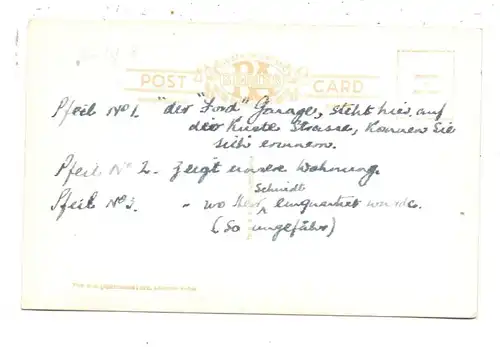 POST CARD
Pfeil No 1. "der "Ford" Garage, steht hier auf
die Küste Strasse, können Sie
sich erinnern.
Pfeil No 2. zeigt unsere Wohnung.
Schmidt
Pfeil No 3. - wo Herr einquartiert wurde.
(So ungefähr)